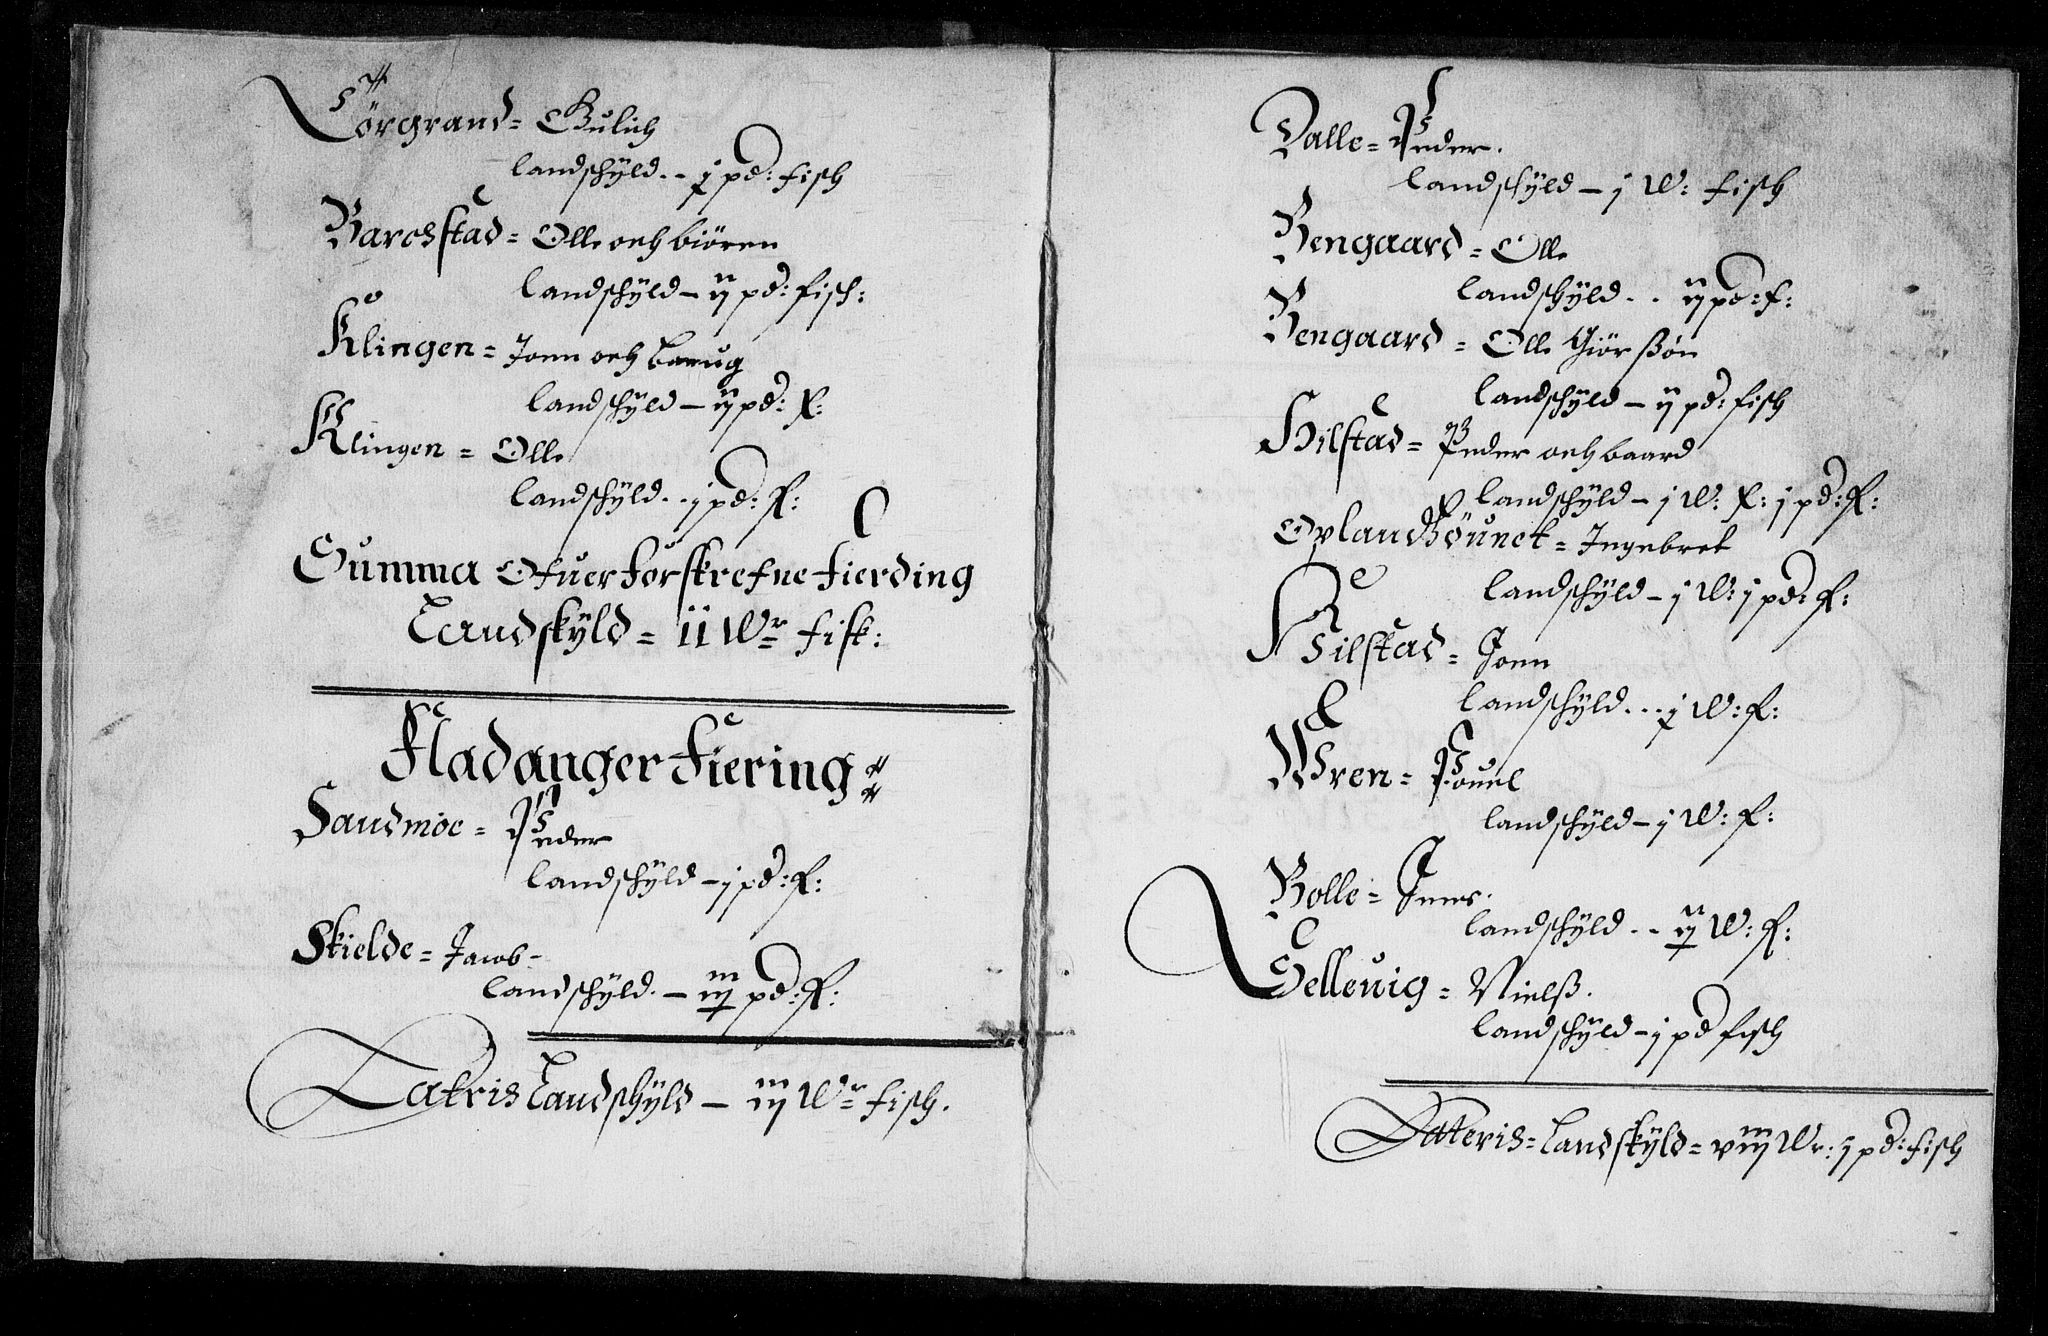 Törgrand = Gulich
landschÿld .. j pd: fisch
Barchstad = Olle och biören
landschÿld – ij pd: fisch:
Klingen = Jonn och
landschÿld – ij pd: f:
Klingen = Olle
landschÿld .. j pd: f:
Summa Ofuer forskrefne fierding
Landskÿld = 11 Wr fisk:
Fladanger Fiering:
Sandmoe = Peder
landschÿld – j pd: f:
Skielde = Jacob –
landschÿld. – iij pd: f:
Lateris Landschÿld – iij Wr fisch.
Dalle = Peder.
landschÿld – j W: fisch
Bengaard = Olle
landschÿld .. ij pd: f:
Bengaard = Olle Giörßön
landschÿld – ij pd: fisch
Hilstad = Peder och baard
landschÿld – j W: f: j pd: f:
= Ingebret
landschÿld – j W: j pd: f:
Hilstad = Jonn
landschÿld ... j W: f:
Wren = Pouel
landschÿld – j W: f:
Bolle = Jens.
landschÿld .. ij W: f:
Selleuig = Nielß.
landschÿld – j pd fisch
Lateris = Landskÿld = viij Wr: j pd: fisch